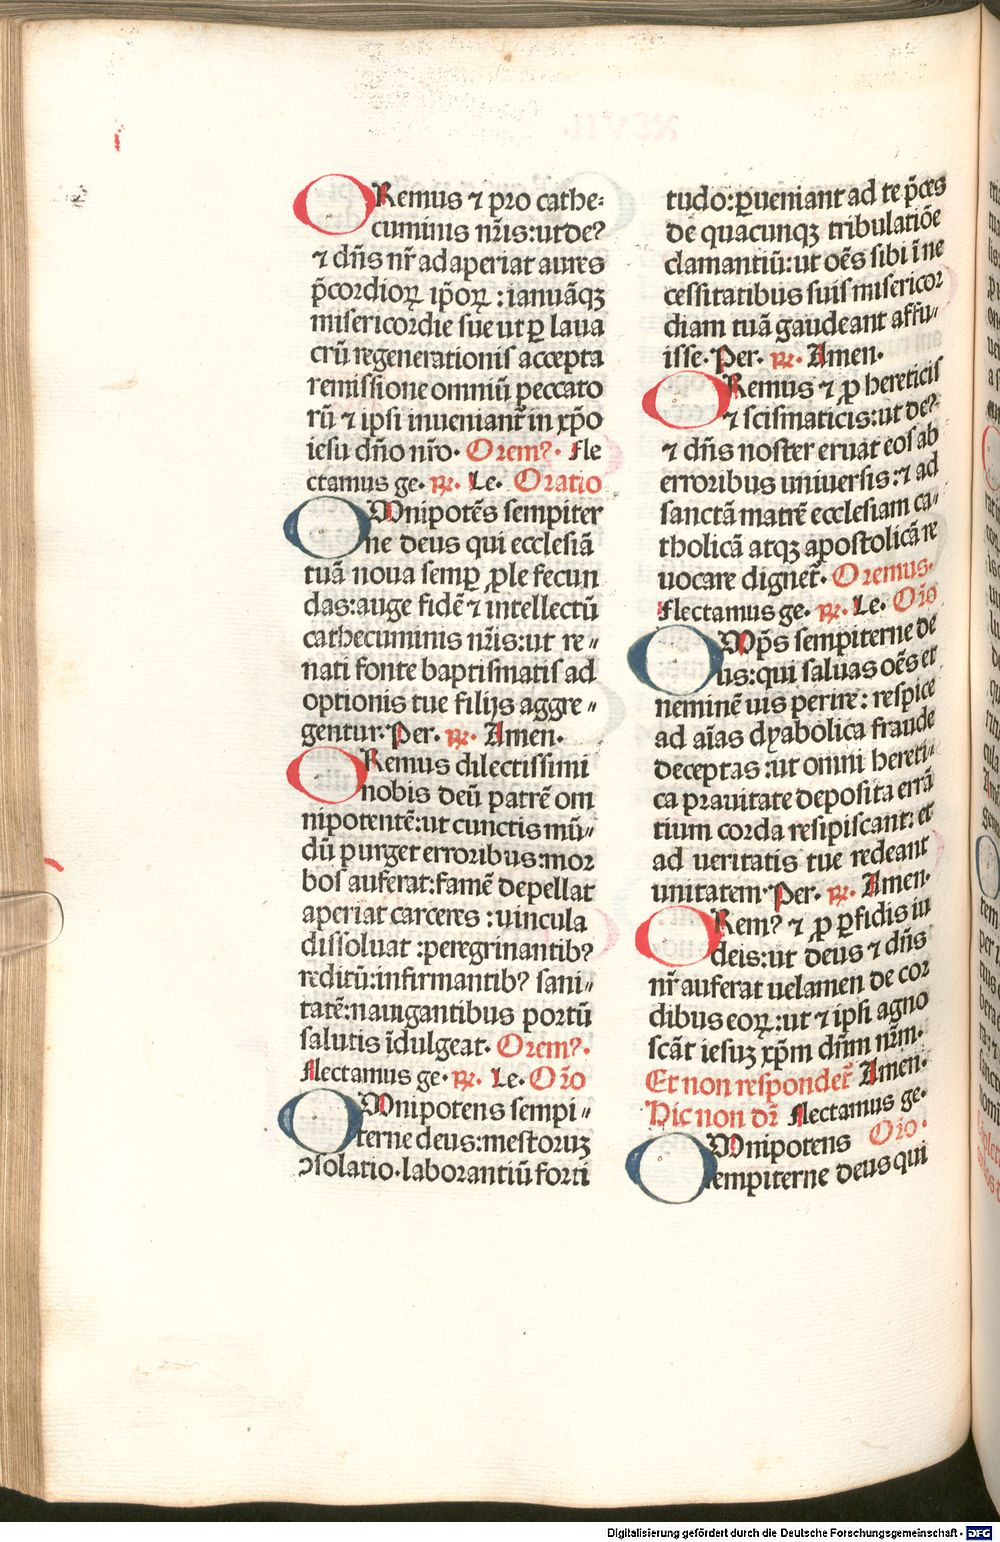 ORemus ⁊ pro cathe⸗
cuminis nr̃is:ut deꝰ
⁊ dn̄s nr̃ adaperiat aures
p̄cordioꝝ ip̄oꝝ : ianuāqꝫ
misericordie sue ut ꝑ laua
crū regenerationis accepta
remissione omniū peccato
rū ⁊ ipsi inueniant̃ in xp̄o
iesu dn̄o nr̃o· Oremꝰ· Fle
ctamus ge· ℟· Le· Oratio
OMnipotēs sempiter
ne deus qui ecclesiā
tuā noua semꝑ ꝓle fecun
das:auge fidē ⁊ intellectū
cathecuminis nr̃is:ut re⸗
nati fonte baptismatis ad
optionis tue filijs aggre⸗
gentur·Per· ℟· Amen·
ORemus dilectissimi
nobis deū patrē om
nipotentē:ut cunctis mū⸗
dū purget erroribus:mor
bos auferat:famē depellat
aperiat carceres :uincula
dissoluat :peregrinantibꝰ
reditū:infirmantibꝰ sani⸗
tatē:nauigantibus portū
salutis īdulgeat· Oremꝰ·
Flectamus ge· ℟· Le· Or̄o
OMnipotens sempi⸗
terne deus:mestoruꝫ
ↄsolatio·laborantiū forti
tudo:ꝑueniant ad te p̄ces
de quacunqꝫ tribulatiōe
clamantiū:ut oēs sibi ī ne
cessitatibus suis misericor
diam tuā gaudeant affu⸗
isse·Per· ℟· Amen·
ORemus ⁊ ꝓ hereticis
⁊ scismaticis:ut deꝰ
⁊ dn̄s noster eruat eos ab
erroribus universis:⁊ ad
sanctā matrē ecclesiam ca⸗
tholicā atqꝫ apostolicā re
uocare dignet̃· Oremus·
Flectamus ge· ℟· Le· Or̄o
OMp̄s sempiterne de
us:qui saluas oēs et
neminē uis perire: respice
ad aīas dyabolica fraude
deceptas :ut omni hereti⸗
ca prauitate deposita errā
tium corda resipiscant: et
ad ueritatis tue redeant
unitatem·Per· ℟· Amen·
ORemꝰ ⁊ ꝓ ꝑfidis iu
deis:ut deus ⁊ dn̄s
nr̃ auferat uelamen de cor
dibus eoꝝ:ut ⁊ ipsi agno
scāt iesuꝫ xp̄m dn̄m nr̃m·
Et non respondet̃ Amen·
Hic non dr̃ Flectamus ge·
OMnipotens Or̄o·
sempiterne deus qui
Digitalisierung gefördert durch die Deutsche Forschungsgemeinschaft - DFG